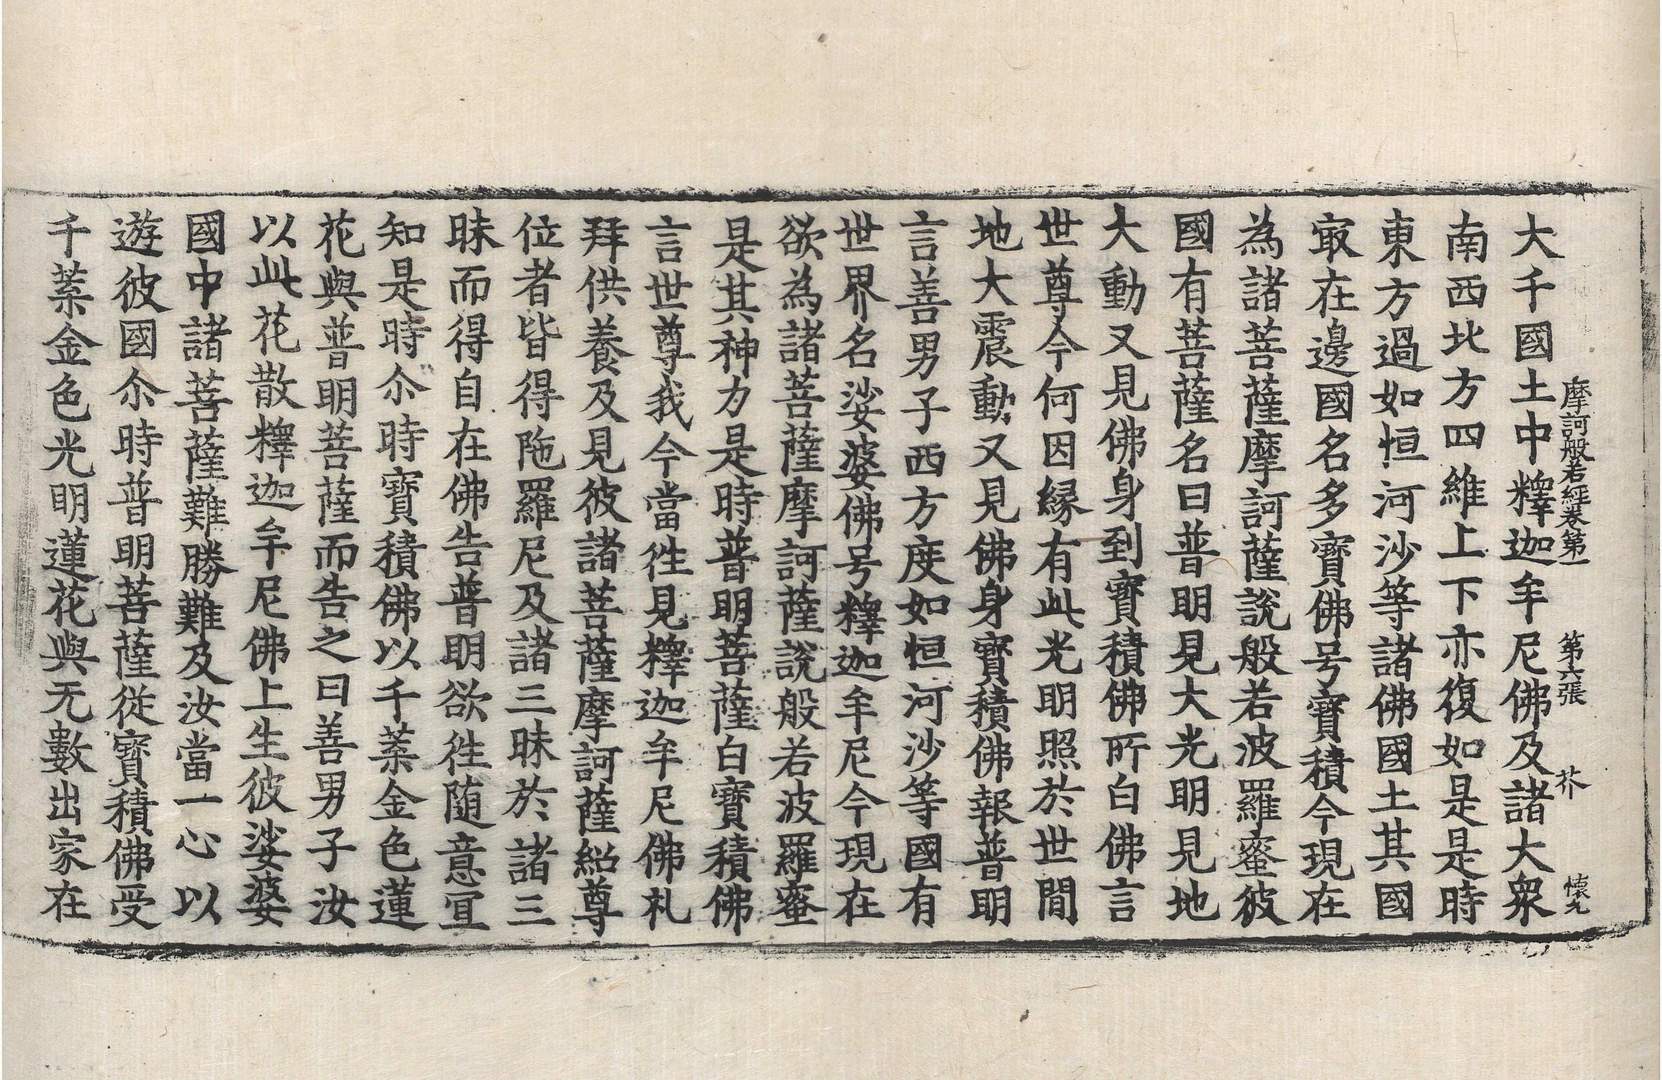 摩訶般若經卷第一　第六張　芥　懷光
大千國土中釋迦牟尼佛及諸大衆
南西北方四維上下亦復如是是時
東方過如恒河沙等諸佛國土其國
㝡在邊國名多寶佛号寶積今現在
為諸菩薩摩訶薩說般若波羅蜜彼
國有菩薩名曰普明見大光明見地
大動又見佛身到寶積佛所白佛言
世尊今何因緣有此光明照於世間
地大震動又見佛身寶積佛報普明
言善男子西方度如恒河沙等國有
世界名娑婆佛号釋迦牟尼今現在
欲為諸菩薩摩訶薩說般若波羅蜜
是其神力是時普明菩薩白寶積佛
言世尊我今當往見釋迦牟尼佛礼
拜供養及見彼諸菩薩摩訶薩紹尊
位者皆得陁羅尼及諸三昧於諸三
昧而得自在佛告普明欲往隨意宜
知是時尒時寶積佛以千葉金色蓮
花與普明菩薩而告之曰善男子汝
以此花散釋迦牟尼佛上生彼娑婆
國中諸菩薩難勝難及汝當一心以
遊彼國尒時普明菩薩從寶積佛受
千葉金色光明蓮花與无數出家在